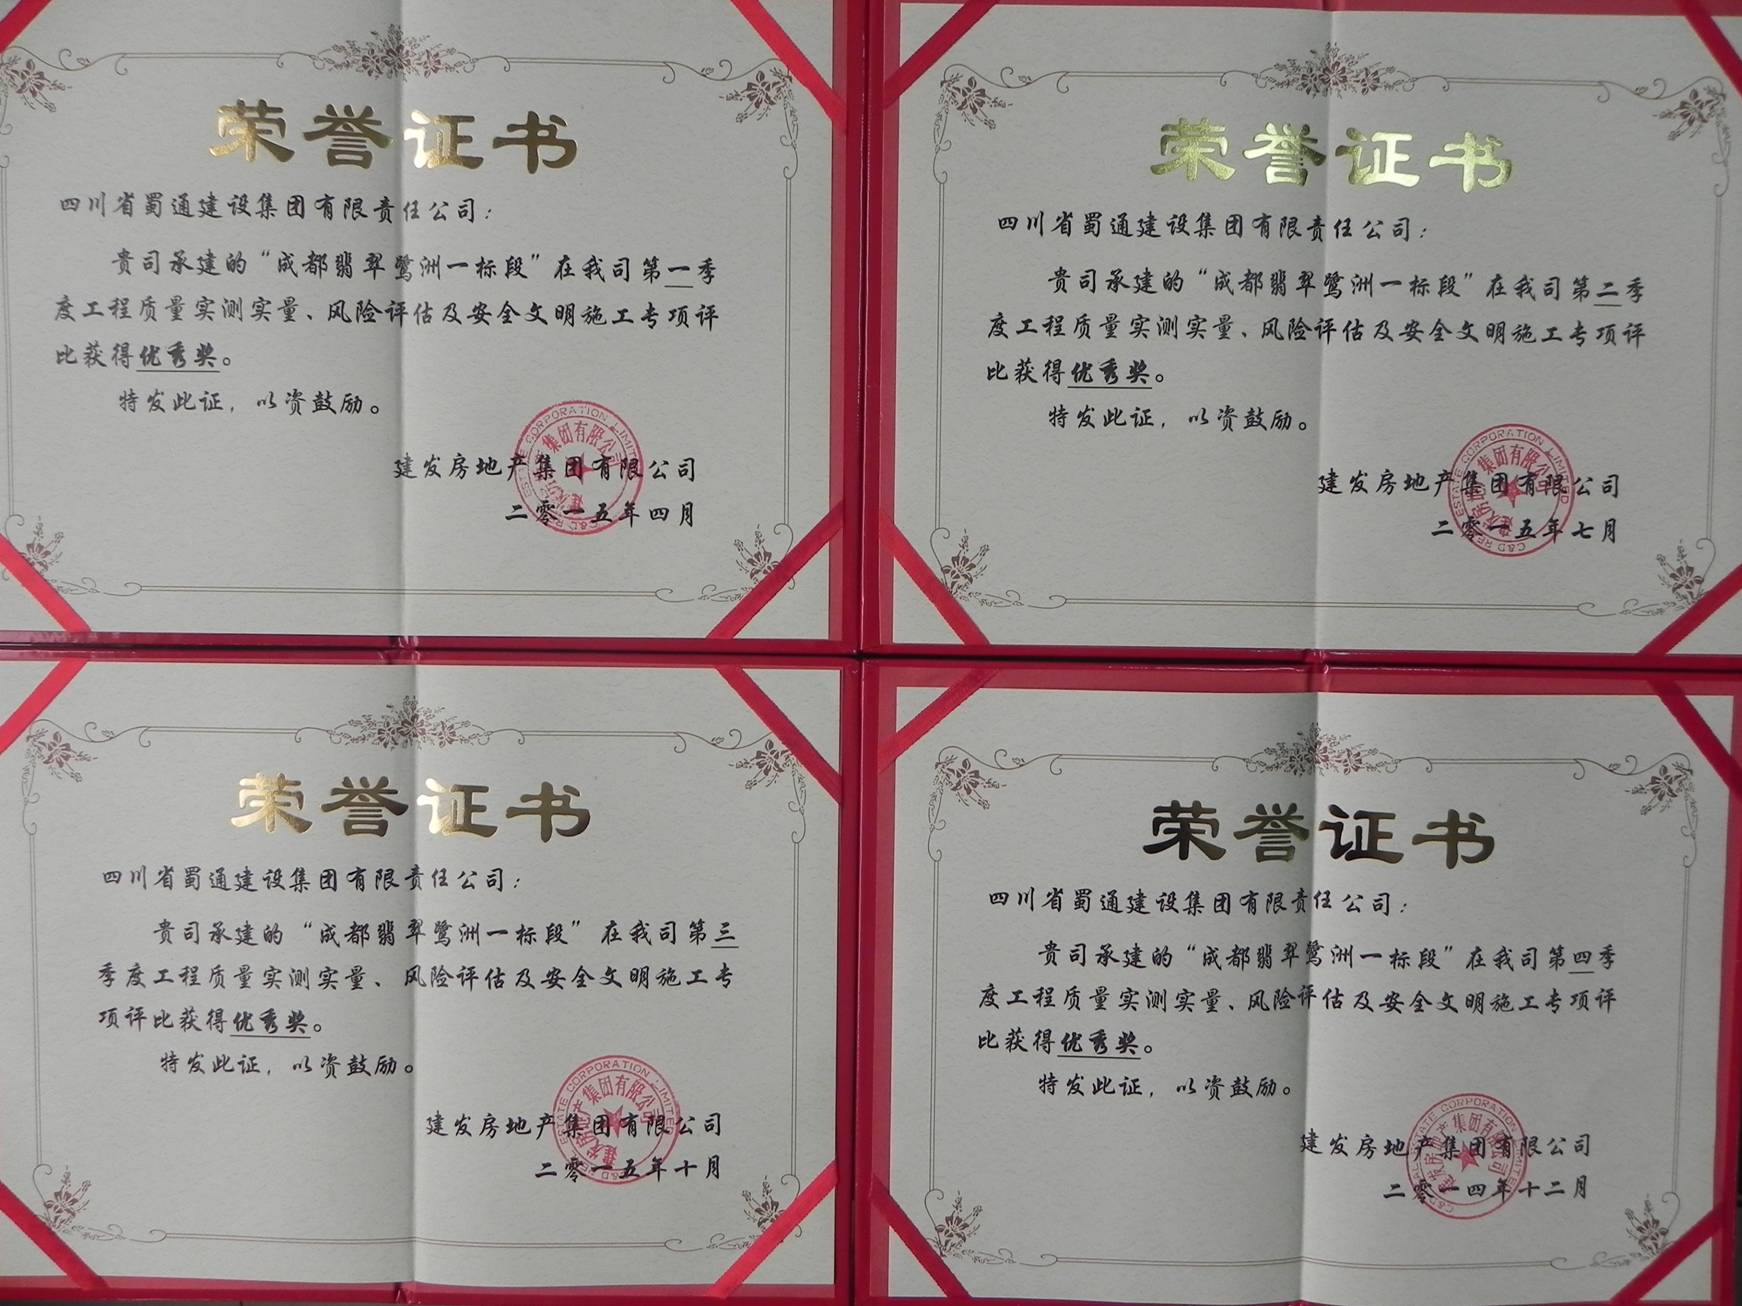 荣誉证书
四川省蜀通建设集团有限责任公司：
贵司承建的“成都翡翠鹭洲一标段”在我司第一季
度工程质量实测实量、风险评估及安全文明施工专项评
比获得优秀奖。
特发此证，以资鼓励。
建发房地产集团有限公司
二零一五年四月
荣誉证书
四川省蜀通建设集团有限责任公司：
贵司承建的“成都翡翠鹭洲一标段”在我司第二季
度工程质量实测实量、风险评估及安全文明施工专项评
比获得优秀奖。
特发此证，以资鼓励。
建发房地产集团有限公司
二零一五年七月
荣誉证书
四川省蜀通建设集团有限责任公司：
贵司承建的“成都翡翠鹭洲一标段”在我司第三
季度工程质量实测实量、风险评估及安全文明施工专
项评比获得优秀奖。
特发此证，以资鼓励。
建发房地产集团有限公司
二零一五年十月
荣誉证书
四川省蜀通建设集团有限责任公司：
贵司承建的“成都翡翠鹭洲一标段”在我司第四季
度工程质量实测实量、风险评估及安全文明施工专项评
比获得优秀奖。
特发此证，以资鼓励。
建发房地产集团有限公司
二零一四年十二月